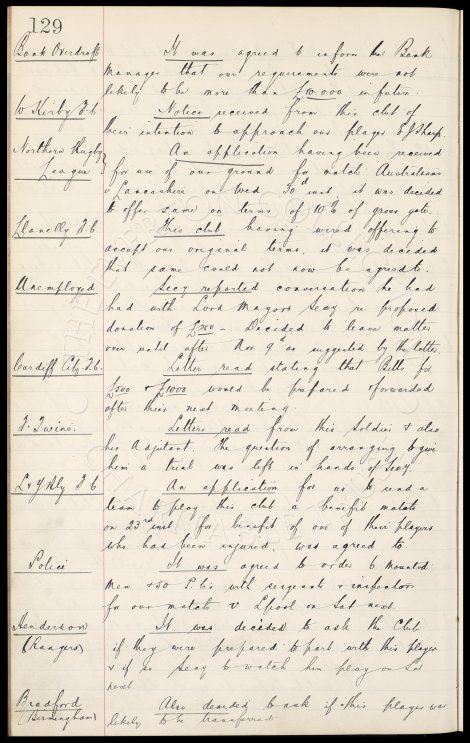 129
Bank Overdraft It was agreed to inform the Bank
Manager that our requirements were not
likely to be more than £10,000 in future.
W Kirby F.C. Notice received from this club of
their intention to approach our player Sharp.
Northern Rugby An application having been received
League for use of our ground for match Australians
v Lancashire on Wed 30th inst, it was decided
to offer same on terms of 10% of gross gate.
Llanelly F.C This club having wired offering to
accept our original terms, it was decided
that same could not now be agreed to.
Unemployed Secy reported conversation he had
had with Lord Mayors Secy re proposed
donation of £500 – Decided to leave matter
over until after Nov 9th as suggested by the latter.
Cardiff City F.C. Letter read stating that Bills for
£500 & £1000 would be prepared & forwarded
after their next meeting.
F. Twine. Letters read from this Soldier & also
his Adjutant. The question of arranging to give
him a trial was left in hands of Secy.
L & Y Rly F.C An application for us to send a
team to play this club a benefit match
on 23rd inst for benefit of one of their players
who had been injured, was agreed to
Police It was agreed to order 6 Mounted
Men & 50 P.C's with sergeants & inspectors
for our match v L'pool on Sat next.
Henderson It was decided to ask the Club
(Rangers) if they were prepared to part with this player
& if so Secy to watch him play on Sat
next
Bradford Also decided to ask if this player was
(Birmingham) likely to be transferred.